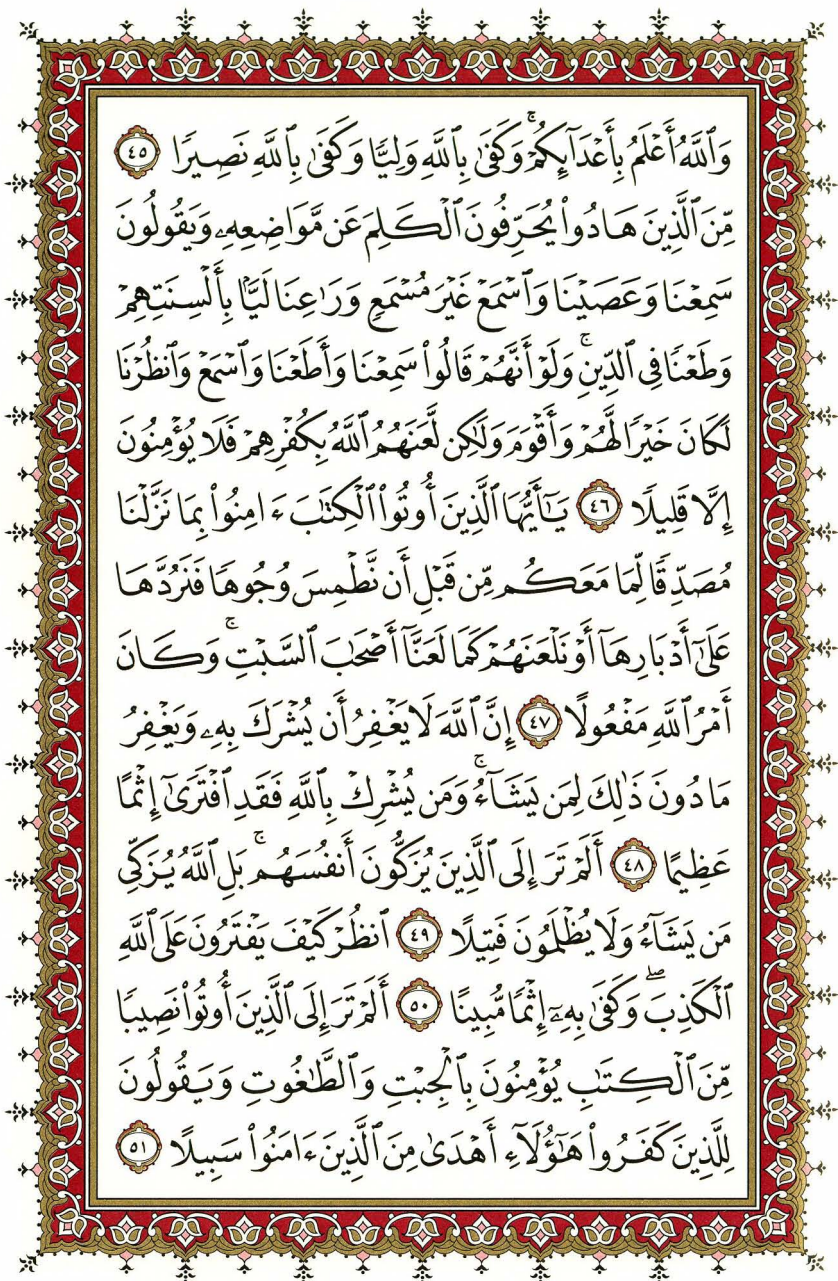 وَٱللَّهُ أَعْلَمُ بِأَعْدَآئِكُمْۚ وَكَفَىٰ بِٱللَّهِ وَلِيًّا وَكَفَىٰ بِٱللَّهِ نَصِيرًا ٤٥
مِّنَ ٱلَّذِينَ هَادُواْ يُحَرِّفُونَ ٱلْكَلِمَ عَن مَّوَاضِعِهِۦ وَيَقُولُونَ
سَمِعْنَا وَعَصَيْنَا وَٱسْمَعْ غَيْرَ مُسْمَعٍ وَرَٰعِنَا لَيًّۢا بِأَلْسِنَتِهِمْ
وَطَعْنًا فِى ٱلدِّينِۚ وَلَوْ أَنَّهُمْ قَالُواْ سَمِعْنَا وَأَطَعْنَا وَٱسْمَعْ وَٱنظُرْنَا
لَكَانَ خَيْرًا لَّهُمْ وَأَقْوَمَ وَلَٰكِن لَّعَنَهُمُ ٱللَّهُ بِكُفْرِهِمْ فَلَا يُؤْمِنُونَ
إِلَّا قَلِيلًا ٤٦ يَٰٓأَيُّهَا ٱلَّذِينَ أُوتُواْ ٱلْكِتَٰبَ ءَامِنُواْ بِمَا نَزَّلْنَا
مُصَدِّقًا لِّمَا مَعَكُم مِّن قَبْلِ أَن نَّطْمِسَ وُجُوهًا فَنَرُدَّهَا
عَلَىٰٓ أَدْبَارِهَآ أَوْ نَلْعَنَهُمْ كَمَا لَعَنَّآ أَصْحَٰبَ ٱلسَّبْتِۚ وَكَانَ
أَمْرُ ٱللَّهِ مَفْعُولًا ٤٧ إِنَّ ٱللَّهَ لَا يَغْفِرُ أَن يُشْرَكَ بِهِۦ وَيَغْفِرُ
مَا دُونَ ذَٰلِكَ لِمَن يَشَآءُۚ وَمَن يُشْرِكْ بِٱللَّهِ فَقَدِ ٱفْتَرَىٰٓ إِثْمًا
عَظِيمًا ٤٨ أَلَمْ تَرَ إِلَى ٱلَّذِينَ يُزَكُّونَ أَنفُسَهُمۚ بَلِ ٱللَّهُ يُزَكِّى
مَن يَشَآءُ وَلَا يُظْلَمُونَ فَتِيلًا ٤٩ ٱنظُرْ كَيْفَ يَفْتَرُونَ عَلَى ٱللَّهِ
ٱلْكَذِبَۖ وَكَفَىٰ بِهِۦٓ إِثْمًا مُّبِينًا ٥٠ أَلَمْ تَرَ إِلَى ٱلَّذِينَ أُوتُواْ نَصِيبًا
مِّنَ ٱلْكِتَٰبِ يُؤْمِنُونَ بِٱلْجِبْتِ وَٱلطَّٰغُوتِ وَيَقُولُونَ
لِلَّذِينَ كَفَرُواْ هَٰٓؤُلَآءِ أَهْدَىٰ مِنَ ٱلَّذِينَ ءَامَنُواْ سَبِيلًا ٥١